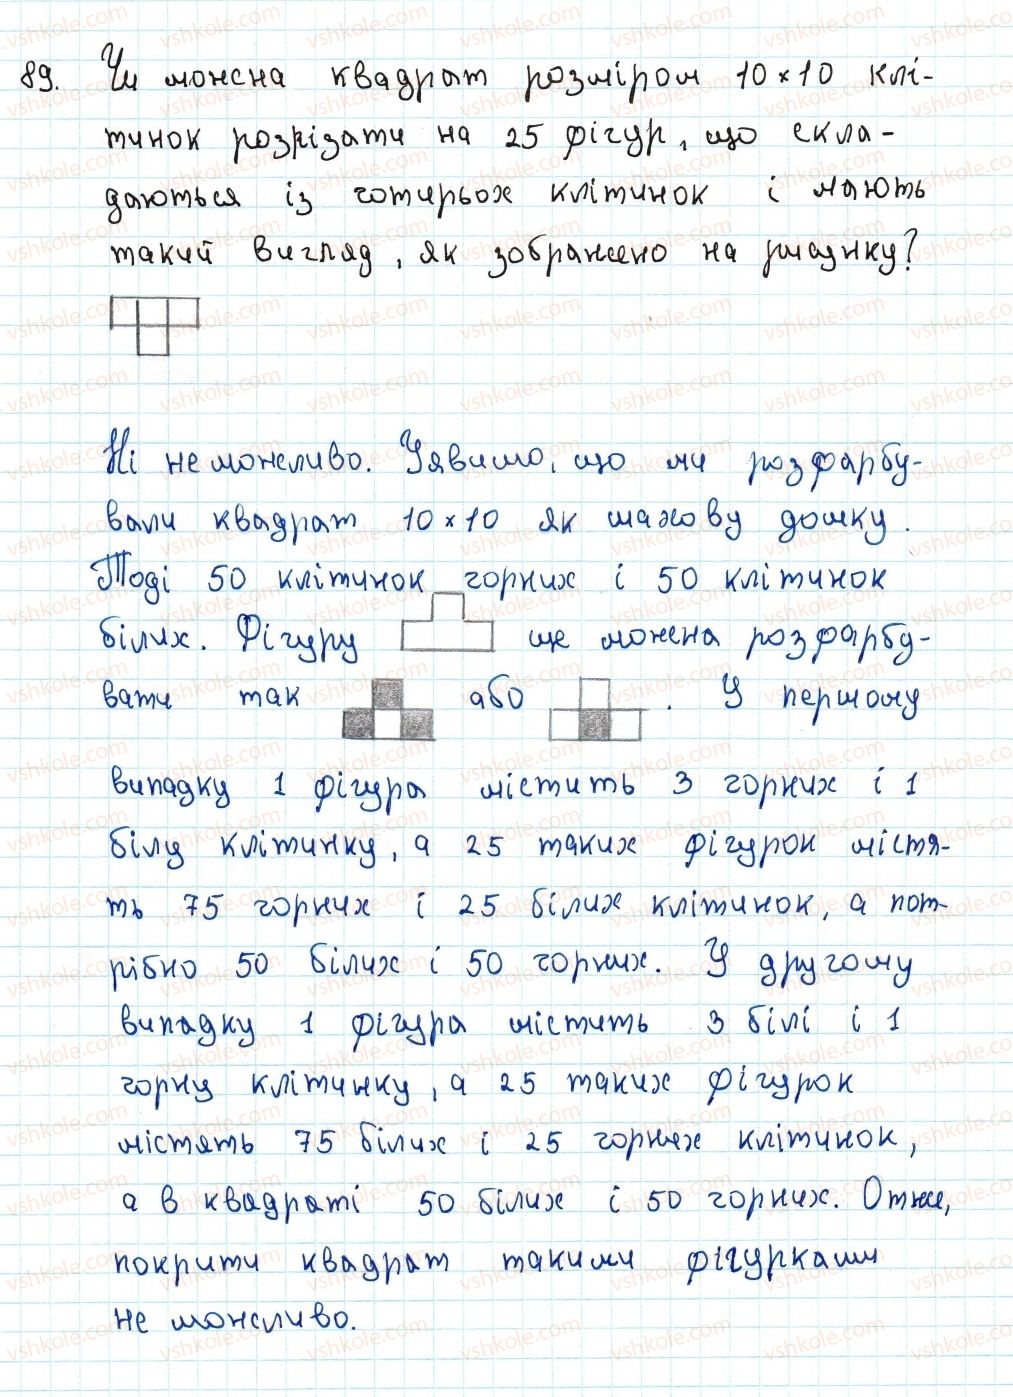 89. Чи можна квадрат розміром 10×10 клі-
тинок розрізати на 25 фігур, що скла-
даються із чотирьох клітинок і мають
такий вигляд, як зображено на рисунку?
Ні не можливо. Уявимо, що ми розфарбу-
вали квадрат 10×10 як шахову дошку.
Тоді 50 клітинок чорних і 50 клітинок
білих. Фігуру ще можна розфарбу-
вати так або . У першому
випадку 1 фігура містить 3 чорних і 1
білу клітинку, а 25 таких фігурок містя-
ть 75 чорних і 25 білих клітинок, а пот-
рібно 50 білих і 50 чорних. У другому
випадку 1 фігура містить 3 білі і 1
чорну клітинку, а 25 таких фігурок
містять 75 білих і 25 чорних клітинок,
а в квадраті 50 білих і 50 чорних. Отже,
покрити квадрат такими фігурками
не можливо.